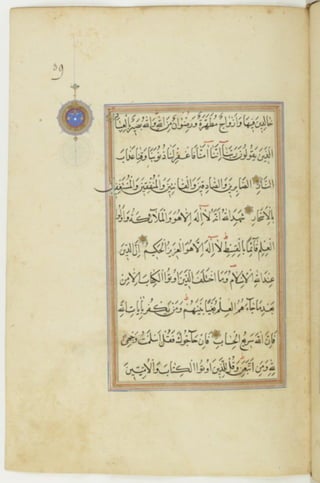 59
خالدين فيها وازواج مطهرة ورضوان من الله والله بصير بالعباد
الذين يقولون ربنا اننا امنا فاغفر لنا ذنوبنا وقنا عذاب
النار الصابرين والصادقين والقانتين والمنفقين والمستغفرين
بالاسحار شهد الله انه لا اله الا هو والملائكة واولوا
العلم قائما بالقسط لا اله الا هو العزيز الحكيم ان الدين
عند الله الاسلام وما اختلف الذين اوتوا الكتاب الا من
بعد ما جاءهم العلم بغيا بينهم ومن يكفر بايات الله
فان الله سريع الحساب فان حاجوك فقل اسلمت وجهي
لله ومن اتبعن وقل للذين اوتوا الكتاب والاميين